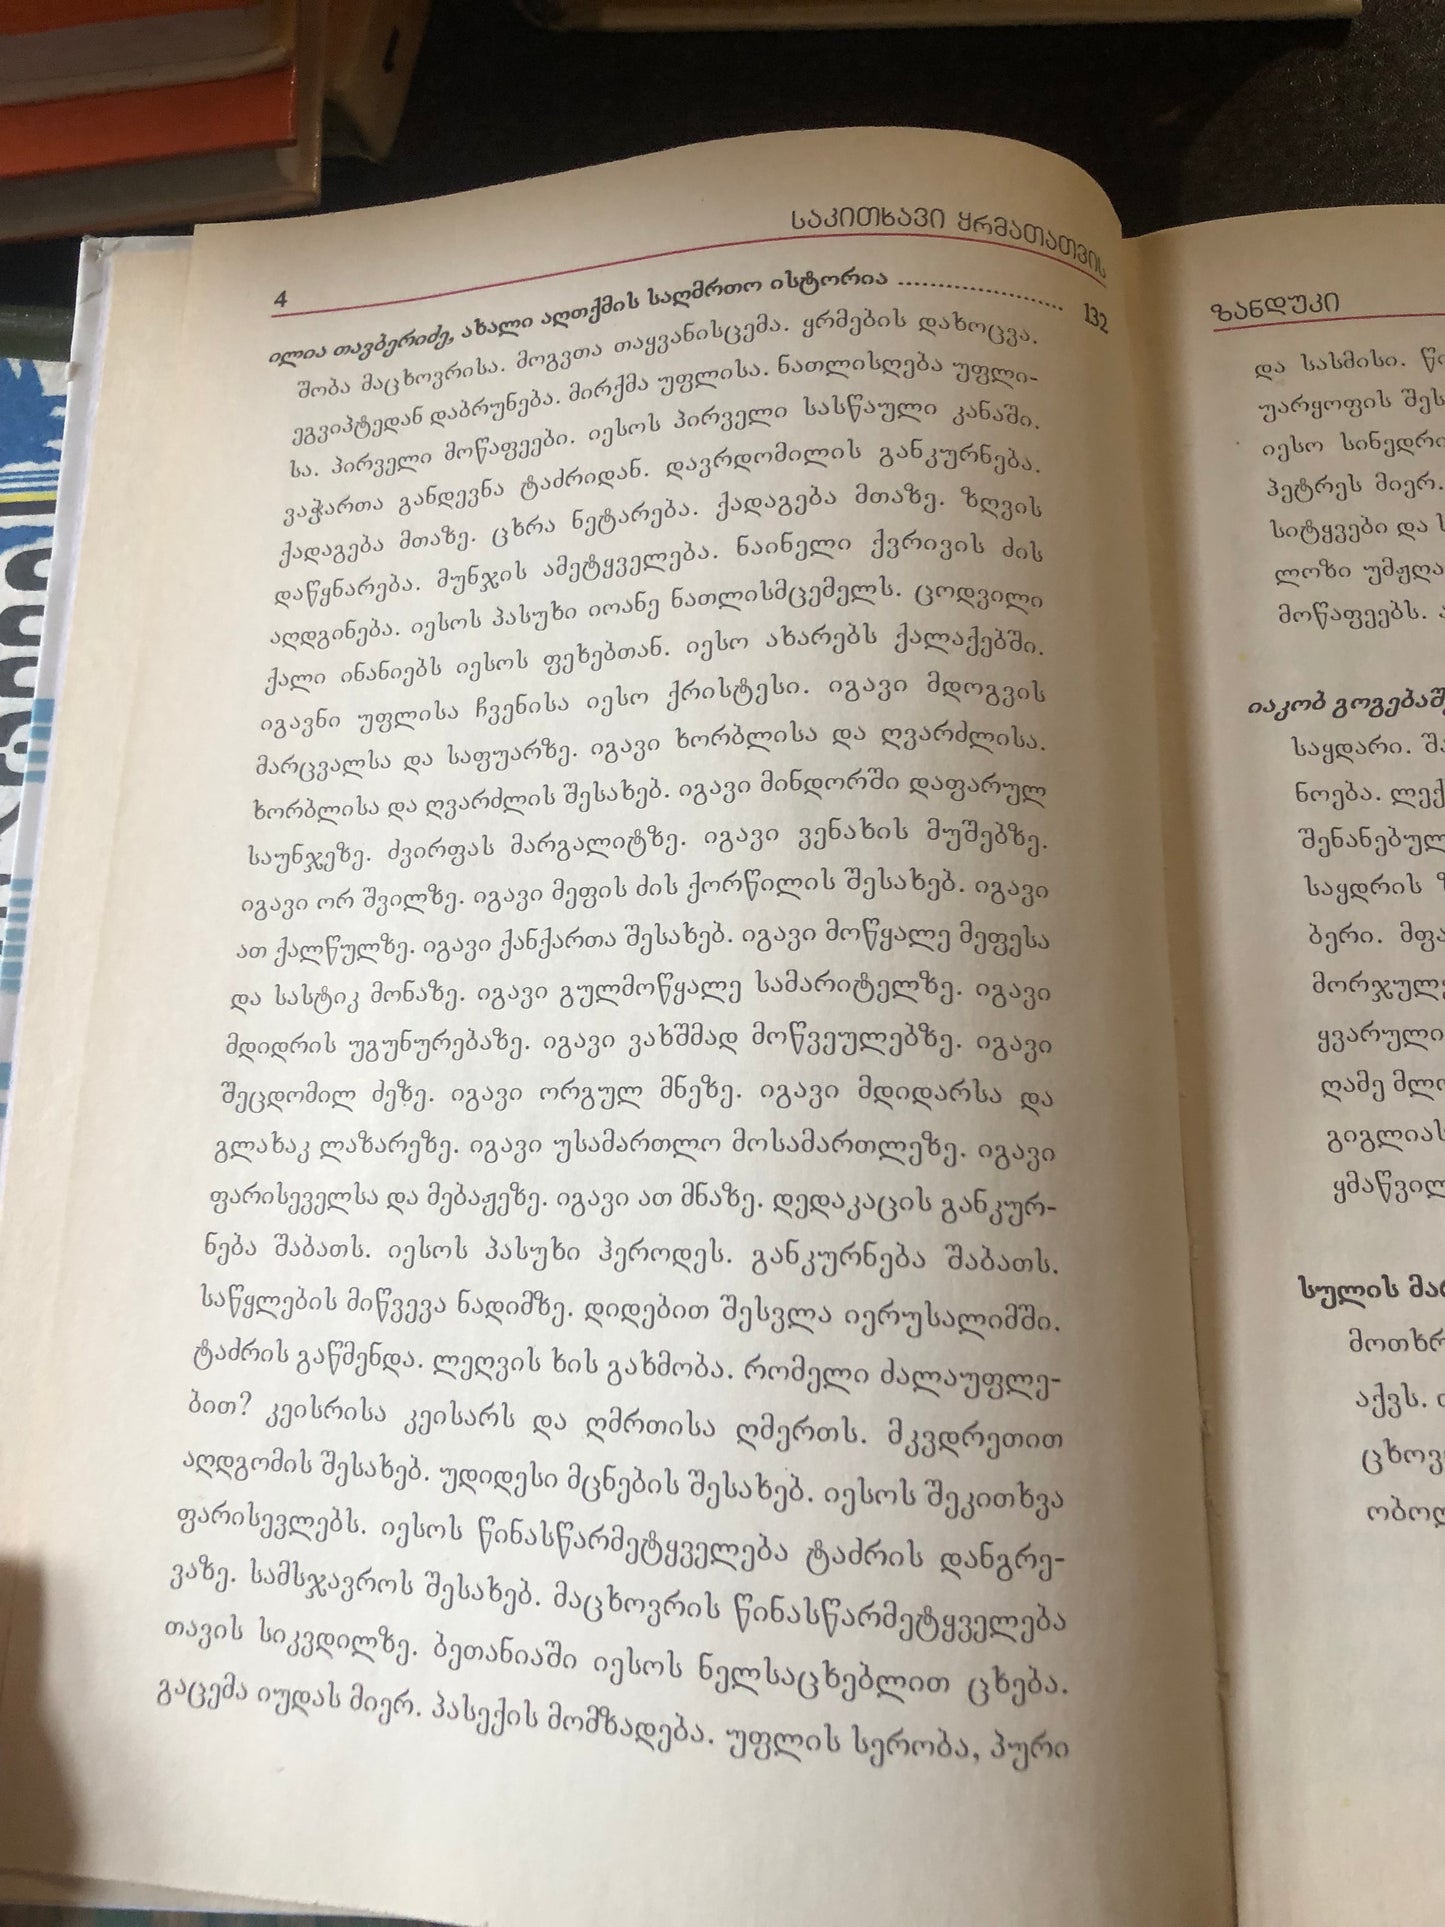 საკითხავი ყრმათათვის
4
ილია თავბერიძე, ახალი აღთქმის საღმრთო ისტორია ........................ 132
შობა მაცხოვრისა. მოგვთა თაყვანისცემა. ყრმების დახოცვა.
ეგვიპტედან დაბრუნება. მირქმა უფლისა. ნათლისღება უფლი-
სა. პირველი მოწაფეები. იესოს პირველი სასწაული კანაში.
ვაჭართა განდევნა ტაძრიდან. დავრდომილის განკურნება.
ქადაგება მთაზე. ცხრა ნეტარება. ქადაგება მთაზე. ზღვის
დაწყნარება. მუნჯის ამეტყველება. ნაინელი ქვრივის ძის
აღდგინება. იესოს პასუხი იოანე ნათლისმცემელს. ცოდვილი
ქალი ინანიებს იესოს ფეხებთან. იესო ახარებს ქალაქებში.
იგავნი უფლისა ჩვენისა იესო ქრისტესი. იგავი მდოგვის
მარცვალსა და საფუარზე. იგავი ხორბლისა და ღვარძლისა.
ხორბლისა და ღვარძლის შესახებ. იგავი მინდორში დაფარულ
საუნჯეზე. ძვირფას მარგალიტზე. იგავი ვენახის მუშებზე.
იგავი ორ შვილზე. იგავი მეფის ძის ქორწილის შესახებ. იგავი
ათ ქალწულზე. იგავი ქანქართა შესახებ. იგავი მოწყალე მეფესა
და სასტიკ მონაზე. იგავი გულმოწყალე სამარიტელზე. იგავი
მდიდრის უგუნურებაზე. იგავი ვახშმად მოწვეულებზე. იგავი
შეცდომილ ძეზე. იგავი ორგულ მნეზე. იგავი მდიდარსა და
გლახაკ ლაზარეზე. იგავი უსამართლო მოსამართლეზე. იგავი
ფარისეველსა და მებაჟეზე. იგავი ათ მნაზე. დედაკაცის განკურ-
ნება შაბათს. იესოს პასუხი ჰეროდეს. განკურნება შაბათს.
საწყლების მიწვევა ნადიმზე. დიდებით შესვლა იერუსალიმში.
ტაძრის გაწმენდა. ლეღვის ხის გახმობა. რომელი ძალაუფლე-
ბით? კეისრისა კეისარს და ღმრთისა ღმერთს. მკვდრეთით
აღდგომის შესახებ. უდიდესი მცნების შესახებ. იესოს შეკითხვა
ფარისევლებს. იესოს წინასწარმეტყველება ტაძრის დანგრე-
ვაზე. სამსჯავროს შესახებ. მაცხოვრის წინასწარმეტყველება
თავის სიკვდილზე. ბეთანიაში იესოს ნელსაცხებლით ცხება.
გაცემა იუდას მიერ. პასექის მომზადება. უფლის სერობა, პური
ზანდუკი
და სასმისი.
უარყოფის
იესო
პეტრეს მიერ.
სიტყვები და
ლოზი
მოწაფეებს.
იაკობ
საყდარი.
ნოება.
საყდრის
ბერი.
ღამე
სულის
აქვს.